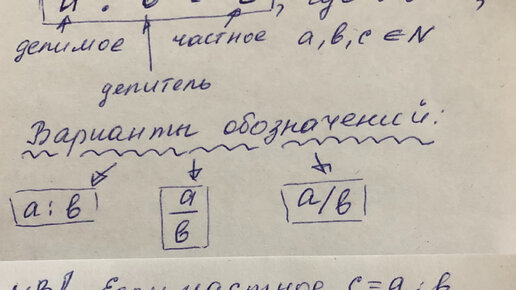 делимое частное a, b, c ∈ N
делитель
Варианты обозначений:
a : b a/b a/b
Если частное c = a : b